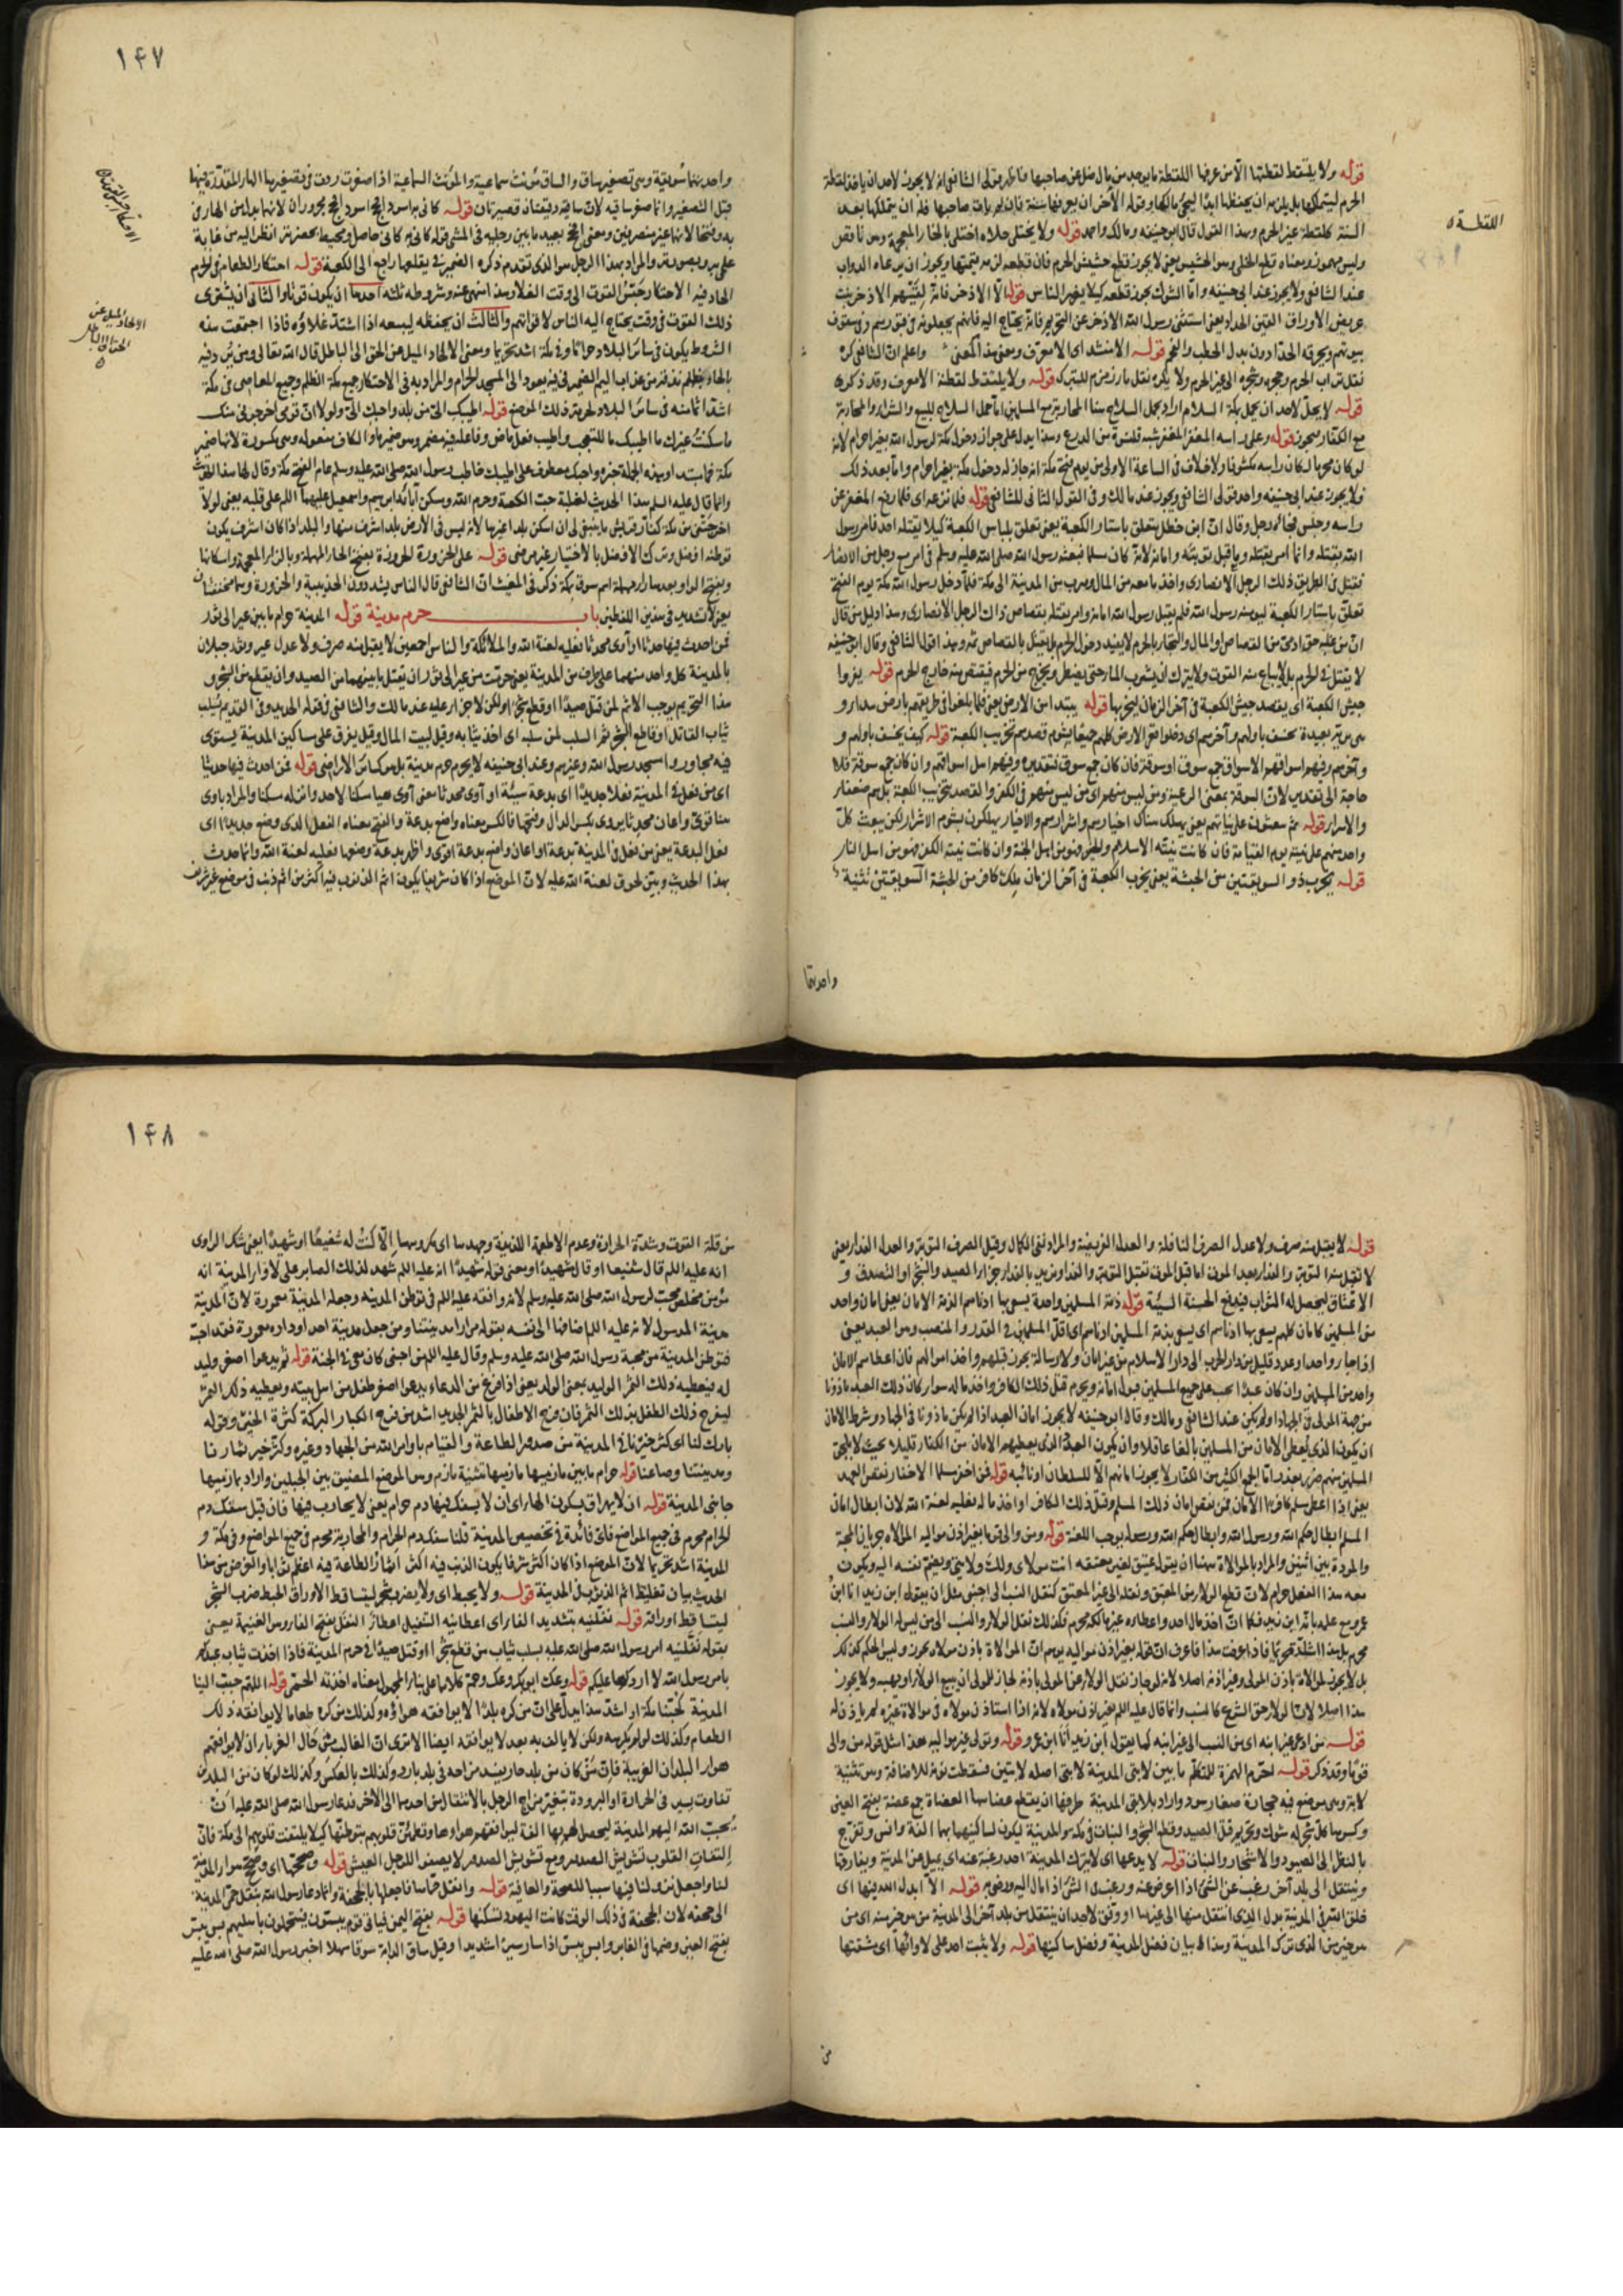 قوله ولا يلتقط لقطتها الا من عرفها اللقطة ما يوجد من مال ضل عن صاحبها فاظهر قولى الشافعى انه لا يجوز لاحد ان ياخذ لقطة
الحرم ليتملكها بل يلزمه ان يحفظها ابدا ليجئ مالكها وقوله الآخر ان يعرفها سنة فان لم يات صاحبها فله ان يتملكها بعد
السنة كلقطة غير الحرم وبهذا القول قال ابو حنيفه ومالك واحمد قوله ولا يختلى خلاه اختلى بالخاء المعجمة وهو ناقص
وليس مهموز ومعناه قطع الخلى وهو الحشيش يعنى لا يجوز قطع حشيش الحرم فان قطعه لزمه قيمتها ويجوز ان يرعاه الدواب
عند الشافعى ولا يجوز عند ابى حنيفه واما الشوك يجوز قطعه كيلا يضر الناس قوله الا الاذخر فانه لقينهم الاذخر نبت
عريض الاوراق القين الحداد يعنى استثنى رسول الله الاذخر عن التحريم فانه يحتاج اليه فانهم يجعلونه فى قبورهم وفى سقوف
بيوتهم ويحرقه الحدادون بدل الحطب والفحم قوله الا منشد اى الا معرف ومعنى هذا المعنى واعلم ان الشافعى كره
نقل تراب الحرم وحجره وشجره الى غير الحرم ولا يكره نقل ماء زمزم للتبرك قوله ولا يلتقط لقطته الا معرف وقد ذكره
قوله لا يحل لاحد ان يحمل بمكة السلاح اراد بحمل السلاح هنا المحاربة مع المسلمين اما حمل السلاح للبيع والشراء والمحاربة
مع الكفار فيجوز قوله وعلى راسه المغفر المغفر شبه قلنسوة من الدرع وهذا يدل على جواز دخول مكة لرسول الله بغير احرام لانه
لو كان محرما لكان راسه مكشوفا ولا خلاف فى الساعة الاولى من يوم فتح مكة انه جاز له دخول مكة بغير احرام واما بعد ذلك
فلا يجوز عند ابى حنيفه واحد قولى الشافعى ويجوز عند مالك وفى القول الثانى للشافعى قوله فلما نزعه اى فلما رفع المغفر عن
راسه وجلس فجاءه رجل وقال ان ابن خطل يتعلق باستار الكعبة يعنى تعلق بلباس الكعبة كيلا يقتله احد فامر رسول
الله بقتله وانما امر بقتله وما قبل توبته وامانه لانه كان مسلما فبعثه رسول الله صلى الله عليه وسلم فى امر مع رجل من الانصار
فقتل فى الطريق ذلك الرجل الانصارى واخذ ما معه من المال وهرب من المدينة الى مكة فلما دخل رسول الله مكة يوم الفتح
تعلق باستار الكعبة ليؤمنه رسول الله فلم يقبل رسول الله امانه وامر بقتله بقصاص ذلك الرجل الانصارى وهذا دليل من قال
ان من عليه حق ادمى من القصاص او المال والتجاء بالحرم لا يفيد دخول الحرم بل يقتل بالقصاص ثمه وبهذا قول الشافعى وقال ابو حنيفه
لا يقتل فى الحرم بل لا يباع منه القوت ولا يترك ان يشرب الماء حتى يضطر ويخرج من الحرم فيقتص منه خارج الحرم قوله يغزوا
جيش الكعبة اى يقصد جيش الكعبة فى آخر الزمان ليخربها قوله ببيداء من الارض يعنى فلما بلغوا فى طريقهم بارض بيداء و
هى برية بعيدة يخسف باولهم وآخرهم اى دخلوا فى الارض كلهم جميعا بشوم قصدهم تخريب الكعبة قوله كيف يخسف باولهم و
وآخرهم وفيهم اسواقهم الاسواق جمع سوق او سوقة فان كان جمع سوق فتقديره وفيهم اهل اسواقهم وان كان جمع سوقة فلا
حاجة الى تقدير لان السوقة بمعنى الرعية ومن ليس منهم اى من ليس منهم فى الكفر والقصد بتخريب الكعبة بل هم ضعفاء
والاسراء قوله ثم يبعثون على نياتهم يعنى يهلك هناك اخيارهم واشرارهم والاخيار يهلكون بشوم الاشرار لكن يبعث كل
واحد منهم على نيته يوم القيامة فان كانت نيته الاسلام والخير فهو من اهل الجنة وان كانت نيته الكفر فهو من اهل النار
قوله يخرب ذو السويقتين من الحبشة يعنى يخرب الكعبة فى آخر الزمان ملك كافر من الحبشة السويقتين تثنية
واحدتها
اللقطة
١٤٧
واحدتهما سويقة وهى تصغير ساق والساق مؤنث سماعية والمؤنث السماعية اذا صغرت ردت فى تصغيرها الهاء المقدرة فيها
قبل التصغير وانما صغر ساقيه لان ساقيه دقيقتان قصيرتان قوله كانى به اسود افحج اسود افحج مجروران لانهما بدل من الهاء فى
به وفتحا لانهما غير منصرفين ومعنى افحج بعيد ما بين رجليه فى المشى قوله كانى به كانى حاصل ومحيط بحضرته انظر اليه من غاية
علمى به وبصورته والمراد بهذا الرجل هو الذى تقدم ذكره الضمير فى يقلعها راجع الى الكعبة قوله احتكار الطعام فى الحرم
الحاد فيه الاحتكار حبس القوت الى وقت الغلاء وهذا منهى عنه وشروطه ثلثه احدها ان يكون قوتا والثانى ان يشترى
ذلك القوت فى وقت يحتاج اليه الناس لاقواتهم والثالث ان يحفظه ليبيعه اذا اشتد غلاؤه فاذا اجتمعت هذه
الشروط يكون فى سائر البلاد حراما وفى مكة اشد تحريما ومعنى الالحاد الميل عن الحق الى الباطل قال الله تعالى ومن يرد فيه
بالحاد بظلم نذقه من عذاب اليم الضمير فى فيه يعود الى المسجد الحرام والمراد به فى الاحتكار جميع مكة الظلم وجميع المعاصى فى مكة
اشد اثما منه فى سائر البلاد لحرمة ذلك الموضع قوله اطيبك الى من بلد واحبك الى ولولا ان قومى اخرجونى منك
ما سكنت غيرك ما اطيبك ما للتعجب واطيب فعل ماض وفاعله فيه مضمر وهو ضمير ما والكاف مفعوله وهى مكسورة لانها ضمير
مكة فما مبتدا وهذه الجملة خبره واحبك معطوف على اطيبك خاطب رسول الله صلى الله عليه وسلم عام الفتح مكة وقال لها هذا الحديث
وانما قال عليه السلم هذا الحديث لغلبة حب الكعبة وحرم الله ومسكن آبائه ابراهيم واسمعيل عليهما السلم على قلبه يعنى لولا
اخرجتنى من مكة كفار قريش ما ينبغى لى ان اسكن بلدا غيرها لانه ليس فى الارض بلد اشرف منها والبلد اذا كان اشرف يكون
توطنه افضل وترك الافضل بالاختيار غير مرضى قوله على الحزورة الحزورة بفتح الحاء المهملة وبالزاء المعجمة واسكانها
وبفتح الواو وبعدها راء مهملة اسم سوق بمكة ذكر فى المغيث ان الشافعى قال الناس يشددون الحديبية والحزورة وهما مخففتان
يعنى لا تشديد فى هذين اللفظين باب حرم مدينة قوله المدينة حرام ما بين عير الى ثور
فمن احدث فيها حدثا او آوى محدثا فعليه لعنة الله والملائكة والناس اجمعين لا يقبل منه صرف ولا عدل عير وثور جبلان
بالمدينة كل واحد منهما على طرف من المدينة يعنى حرمت من عير الى ثور ان يقتل ما بينهما من الصيد وان يقطع من الشجر و
هذا التحريم يوجب الاثم لمن قتل صيدا او قطع شجرا ولكن لا جزاء عليه عند مالك والشافعى فى قوله الجديد وفى القديم يسلب
ثياب القاتل او قاطع الشجر ثم السلب لمن سلبه اى اخذ ثيابه وقيل لبيت المال وقيل يفرق على مساكين المدينة يستوى
فيه مجاوروا مسجد رسول الله وغيرهم وعند ابى حنيفه لا يحرم حرم مدينة بل هو كسائر الاراضى قوله فمن احدث فيها حدثا
اى من فعل فى المدينة فعلا جديدا اى بدعة سيئة او آوى محدثا معنى آوى هيا سكنا لاحد وانزله سكنا والمراد باوى
هنا قوى واعان محدثا يروى بكسر الدال وفتحها فالكسر معناه واضع بدعة والفتح معناه الفعل الذى وضع جديدا اى
فعل البدعة يعنى من فعل فى المدينة بدعة او اعان واضع بدعة اوى واظهر بدعة وضعها فعليه لعنة الله وانما حدث
بهذا الحديث وبين لحوق لعنة الله عليه لان الموضع اذا كان شريفا يكون اثم الذنوب فيه اكثر من اثم ذنب فى موضع غير شريف
الاحتكار حبس القوت
الالحاد الميل عن
الحق الى الباطل
قوله لا يقبل منه صرف ولا عدل الصرف النافلة والعدل الفريضة والمراد نفى الكمال وقيل الصرف التوبة والعدل الفداء يعنى
لا تقبل منه التوبة والفداء بعد الموت اما قبل الموت تقبل التوبة والفداء ونريد بالفداء جزاء الصيد والشجر او التصدق و
الاعتاق ليحصل له الثواب فيدفع الحسنة السيئة قوله ذمة المسلمين واحدة يسعى بها ادناهم الذمة الامان يعنى امان واحد
من المسلمين كامان كلهم يسعى بها ادناهم اى يسعى بذمة المسلمين ادناهم اى اقل المسلمين فى القدر والمنصب وهو العبد يعنى
اذا جاء واحد او عدد قليل من دار الحرب الى دار الاسلام من غير امان ولا رسالة يجوز قتلهم واخذ اموالهم فان اعطاهم الامان
واحد من المسلمين وان كان عبدا يجب على جميع المسلمين قبول امانه ويحرم قتل ذلك الكافر واخذ ماله سواء كان ذلك العبد ماذونا
من جهة المولى فى الجهاد او لم يكن عند الشافعى ومالك وقال ابو حنيفه لا يجوز امان العبد اذا لم يكن ماذونا فى الجهاد وشرط الامان
ان يكون الذى يعطى الامان من المسلمين بالغا عاقلا وان يكون العدد الذى يعطيهم الامان من الكفار قليلا بحيث لا يلحق
المسلمين منهم ضرر بعذر واما الجمع الكثير من الكفار لا يجوز امانهم الا للسلطان او نائبه قوله فمن اخفر مسلما الاخفار نقض العهد
يعنى اذا اعطى مسلم كافرا الامان فمن نقض امان ذلك المسلم وقتل ذلك الكافر او اخذ ماله فعليه لعنة الله لان ابطال امان
المسلم ابطال حكم الله ورسول الله وابطال حكم الله ورسوله يوجب اللعنة قوله ومن والى قوما بغير اذن مواليه الموالاة جريان المحبة
والمودة بين اثنين والمراد بالموالاة ههنا ان يقول عتيق لغير معتقه انت مولاى ولك ولايتى ويضم نفسه اليه ويكون
معه هذا الفعل حرام لان قطع الولاء من المعتق ونقله الى غير المعتق كنقل النسب الى اجنبى مثل ان يقول ابن زيد انا ابن
عمرو مع علمه بانه ابن زيد فكما ان اخذ مال احد واعطاءه غير مالكه محرم فكذلك نقل الولاء والنسب الى من ليس له الولاء والنسب
محرم بل هذا اشد تحريما فاذا عرفت هذا فاعرف ان قوله بغير اذن مواليه يوهم ان الموالاة باذن مولاه يجوز وليس الحكم كذلك
بل لا يجوز الموالاة باذن المولى وغير اذنه اصلا لانه لو جاز نقل الولاء عن المولى باذنه لجاز للمولى ان يبيع الولاء او يهبه ولا يجوز
هذا اصلا لان الولاء حق الشرع كالنسب وانما قال عليه السلم بغير اذن مولاه لانه اذا استاذن مولاه فى موالاة غيره لم ياذن له
قوله من ادعى غير ابنه اى من النسب الى غير ابنه كما يقول ابن زيد انا ابن عمرو قوله وتولى غير مواليه هذا مثل قوله من والى
قوما وقد ذكر قوله احرم الهمزة للمتكلم ما بين لابتى المدينة لابتى اصله لابتين فسقطت نونه للاضافة وهى تثنية
لابة وهى موضع فيه حجارة صغار سود واراد بلابتى المدينة طرفها ان يقطع عضاهها العضاة جمع عضة بفتح العين
وكسرها كل شجر له شوك وتحريم قتل الصيد وقطع الشجر والنبات فى مكة والمدينة ليكون لساكنيهما بهما الفة وانس وتفرج
بالنظر الى الصيود والاشجار والنبات قوله لا يدعها اى لا يترك المدينة احد رغبة عنه اى يميل عن المدينة ويفارقها
وينتقل الى بلد آخر رغب عن الشئ اذا اعرض عنه ورغب فى الشئ اذا مال اليه ورضى به قوله الا ابدل الله فيها اى
خلق الله فى المدينة بدل الذى انتقل منها الى غيرها او وفق لاحد ان ينتقل من بلد آخر الى المدينة من هو خير منه اى من
هو خير من الذى ترك المدينة وهذا بيان فضل المدينة وفضل ساكنيها قوله ولا يثبت احد على لاوائها اى مشقتها
من
١٤٨
من قلة القوت وشدة الحرارة وعدم الاطعمة اللذيذة وجهدها اى مكروهها الا كنت له شفيعا او شهيدا يعنى شك الراوى
انه عليه السلم قال شفيعا او قال شهيدا ومعنى قوله شهيدا انه عليه السلم شهد لذلك الصابر على لاواء المدينة انه
مؤمن مخلص محب لرسول الله صلى الله عليه وسلم لانه وافقه عليه السلم فى توطن المدينة وجعله المدينة معمورة لان المدينة
مدينة الرسول لانه عليه السلم ضافها الى نفسه بقوله من اراد مدينتنا ومن جعل مدينة احد او داره معمورة فقد احبه
فتوطن المدينة من محبة رسول الله صلى الله عليه وسلم وقال عليه السلم من احبنى كان معى فى الجنة قوله ثم يدعوا اصغر وليد
له فيعطيه ذلك الثمر الوليد بمعنى الولد يعنى اذا فرغ من الدعاء يدعوا اصغر طفل من اهل بيته ويعطيه ذلك الثمر
ليفرح ذلك الطفل بذلك الثمر فان فرح الاطفال بالثمر الجديد اشد من فرح الكبار البركة كثرة الخير وقوله
بارك لنا اى كثر خيرنا فى المدينة من صدور الطاعة والقيام باوامر الله من الجهاد وغيره وكثر خير ثمارنا
ومدينتنا وصاعنا قوله حرام ما بين مازميها مازميها تثنية مازم وهو الموضع المضيق بين الجبلين واراد بمازميها
جانبى المدينة قوله ان لا يهراق بسكون الهاء اى ان لا يسفك فيها دم حرام يعنى لا يحارب فيها فان قيل سفك دم
الحرام محرم فى جميع المواضع فاى فائدة فى تخصيص المدينة قلنا سفك دم الحرام والمحاربة محرم فى جميع المواضع وفى مكة و
المدينة اشد تحريما لان الموضع اذا كان اكثر شرفا يكون الذنب فيه اكثر اثما والطاعة فيه اعظم ثوابا والغرض من هذا
الحديث بيان تغليظ اثم الذنب فى المدينة قوله ولا يخبط اى ولا يضرب شجر ليتساقط الاوراق الخبط ضرب الشجر
ليتساقط اوراقه قوله نفلنيه بتشديد الفاء اى اعطانيه التنفيل اعطاء النفل بفتح الفاء وهو الغنيمة يعنى
بقوله نفلنيه امر رسول الله صلى الله عليه بسلب ثياب من قطع شجرا او قتل صيدا فى حرم المدينة فاذا اخذت ثيابه
بامر رسول الله لا اردها عليكم قوله وعك ابو بكر وعك وحم كلاهما على بناء المجهول معناه اخذته الحمى قوله اللهم حبب الينا
المدينة كحبنا مكة او اشد هذا يدل على ان من كره بلدا لا يوافقه هواؤه وكذلك من كره طعاما لا يوافقه ذلك
الطعام وكذلك لو لم يكرهه ولكن لا يالف به بعد لا يوافقه ايضا الا ترى ان الغالب من حال الغرباء ان لا يوافقهم
هواء البلدان الغريبة فان من كان من بلد حار يفسد مزاجه فى بلد بارد وكذلك بالعكس وكذلك لو كان بين البلدين
تفاوت يسير فى الحرارة او البرودة يتغير مزاج الرجل بالانتقال من احدهما الى الآخر فدعا رسول الله صلى الله عليه ان
يحبب الله اليهم المدينة ليحصل لهم بها الفة ليوافقهم هواؤها وتطمئن قلوبهم بتوطنها كيلا يلتفت قلوبهم الى مكة فان
التفات القلوب تشويش الصدور ومع تشويش الصدور لا يصفو للرجل العيش قوله وصححها اى وصحح هواء المدينة
لنا واجعل نزولنا فيها سببا للصحة والعافية قوله وانقل حماها فاجعلها بالجحفة وانما دعا رسول الله بنقل حمى المدينة
الى جحفه لان الجحفة فى ذلك الوقت كانت اليهود تسكنها قوله بفتح اليمن فياتى قوم يبسون فيتحملون باهليهم بس يبس
بفتح العين وضمها فى الغابر وابس يبس اذا سار سيرا شديدا وقيل ساق الدابة سوقا سهلا اخبر رسول الله صلى الله عليه